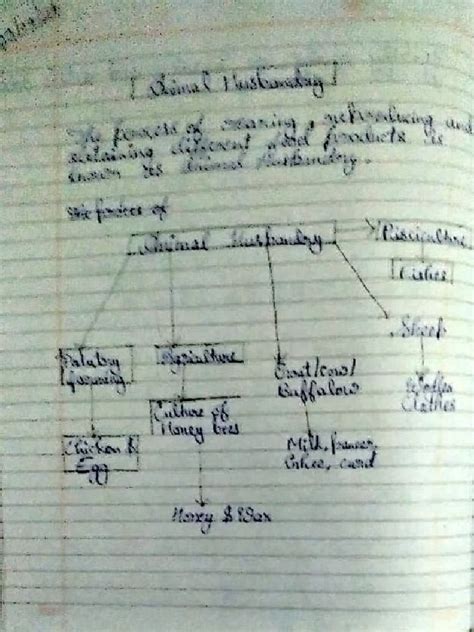 Animal Husbandry
The process of rearing, reproducing and
obtaining different food products is
known as Animal Husbandry.
Animal Husbandry
Pisciculture
Fishes
Sheep
Woollen
Clothes
farming
Chicken &
Egg
Apiculture
Culture of
Honey bees
Honey & Wax
Goat/cow/
Buffalow
Milk, paneer,
Ghee, curd